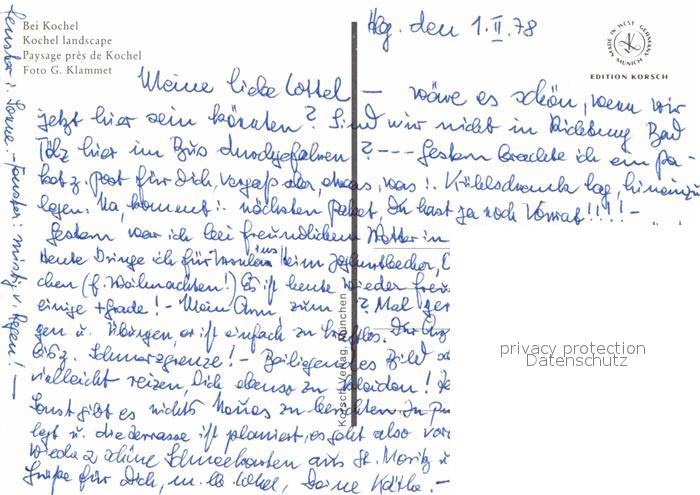 Bei Kochel
Kochel landscape
Paysage près de Kochel
Foto G. Klammet
MADE IN WEST GERMANY
MUNICH
EDITION KORSCH
Hbg. den 1.II.78
Meine liebe Lottel — wäre es schön, wenn wir
jetzt hier sein könnten? Sind wir nicht in Richtung Bad
Tölz hier im Bus durchgefahren? --- Gestern brachte ich ein Pa-
ket z. Post für Dich, vergaß aber, etwas, was i. Kühlschrank lag, hineinzu
legen. Na, kommt i. nächsten Paket, Du hast ja noch Vorrat!!!! -
Gestern war ich bei freundlichem Wetter in
Heute bringe ich für ins Heim Joghurtbecher,
chen (f. Weihnachten!) Es ist heute wieder
einige +grade! - Mein Arm, zum 2. Mal
gen u. Übungen, er ist einfach zu kraftlos.
bis z. Schmerzgrenze! - Beiliegendes Bild
vielleicht reizen, Dich ebenso zu kleiden!
Sonst gibt es nichts Neues zu berichten.
legt u. die Terrasse ist planiert, es geht also
wieder 2 schöne Schneekarten aus St. Moritz u
Grüße für Dich, m. lb. Lottel, Deine Käthe. -
Fenster i. Sonne. - Fenster: mistig v. Regen! —
Korsch Verlag, München
privacy protection
Datenschutz